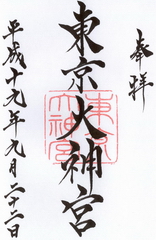 奉拝
東京大神宮
平成十九年九月二十二日
東京
大神宮